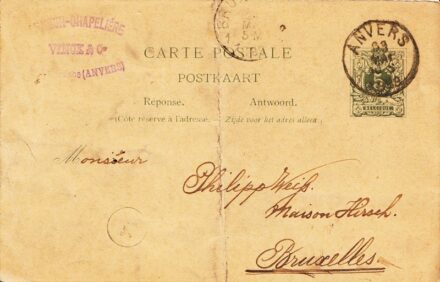 CHAPELIÈRE
VINCK & Cº
(ANVERS)
CARTE POSTALE
POSTKAART
Reponse. Antwoord.
(Côté réservé à l'adresse. — Zijde voor het adres alleen.)
ANVERS
5
BELGIQUE
Monsieur
Philipp Weiß.
Maison Hersch.
Bruxelles.